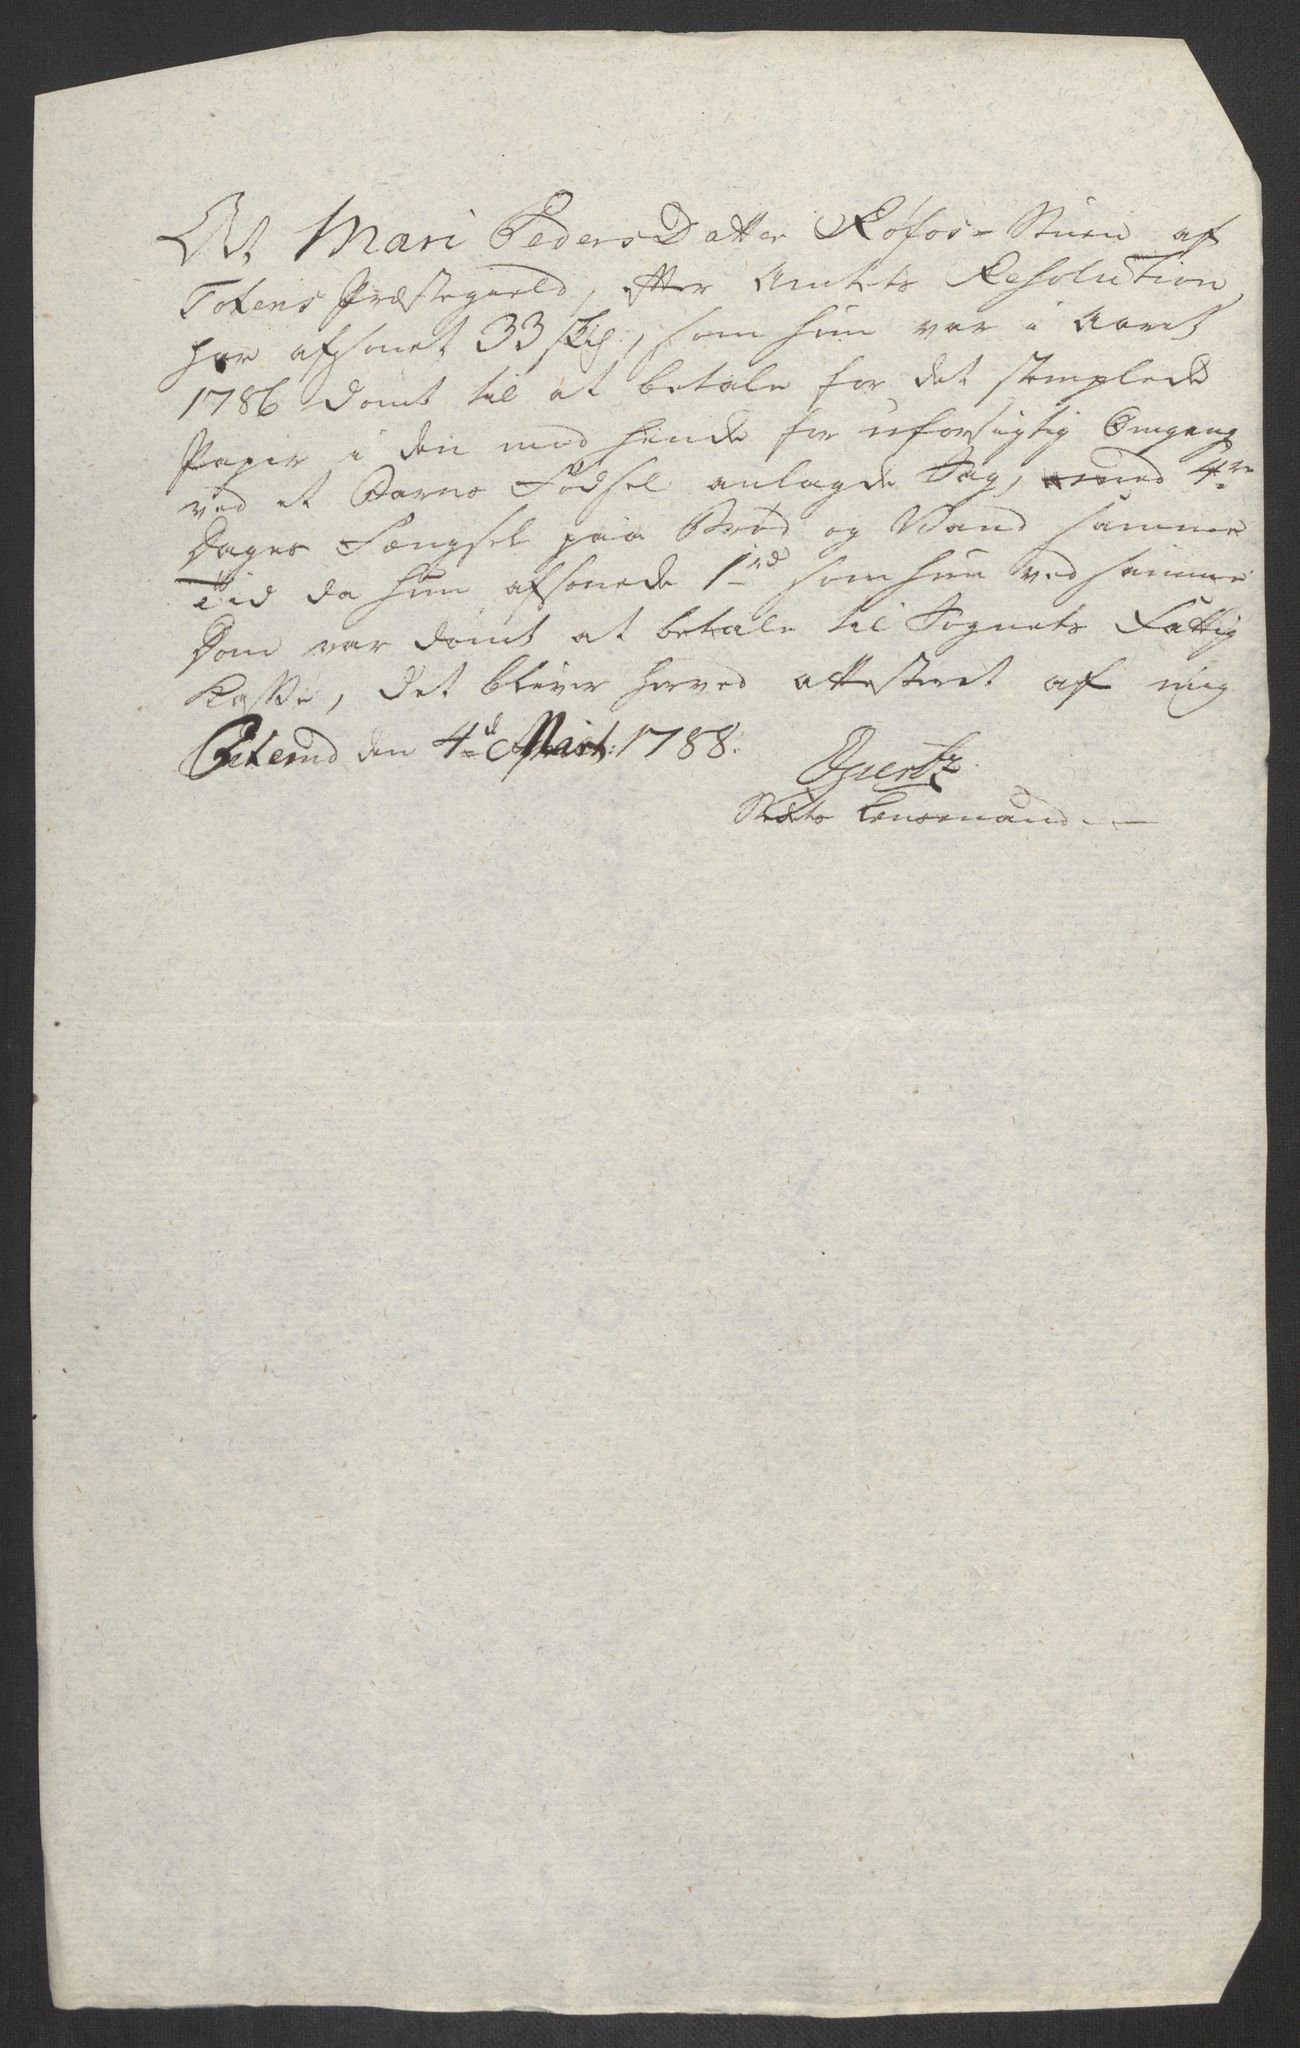 At Mari Peders Datter Røfos-Stuen af
Totens Præstegield, efter Amtets Resolution,
har afsonet 33 skil:, som hun var i Aaret
1786 dömt til at betale for det stemplede
Papir i den mod hende for uforsigtig Omgang
ved et Barns Födsel anlagde Sag, med 4re
Dages Fængsel paa Brød og Vand samme
Tid da hun afsonede 1rd som hun ved samme
Dom var dömt at betale til Sognets Fattig
Kasse, det bliver herved attesteret af mig
den 4d Mart: 1788.
Lensmand